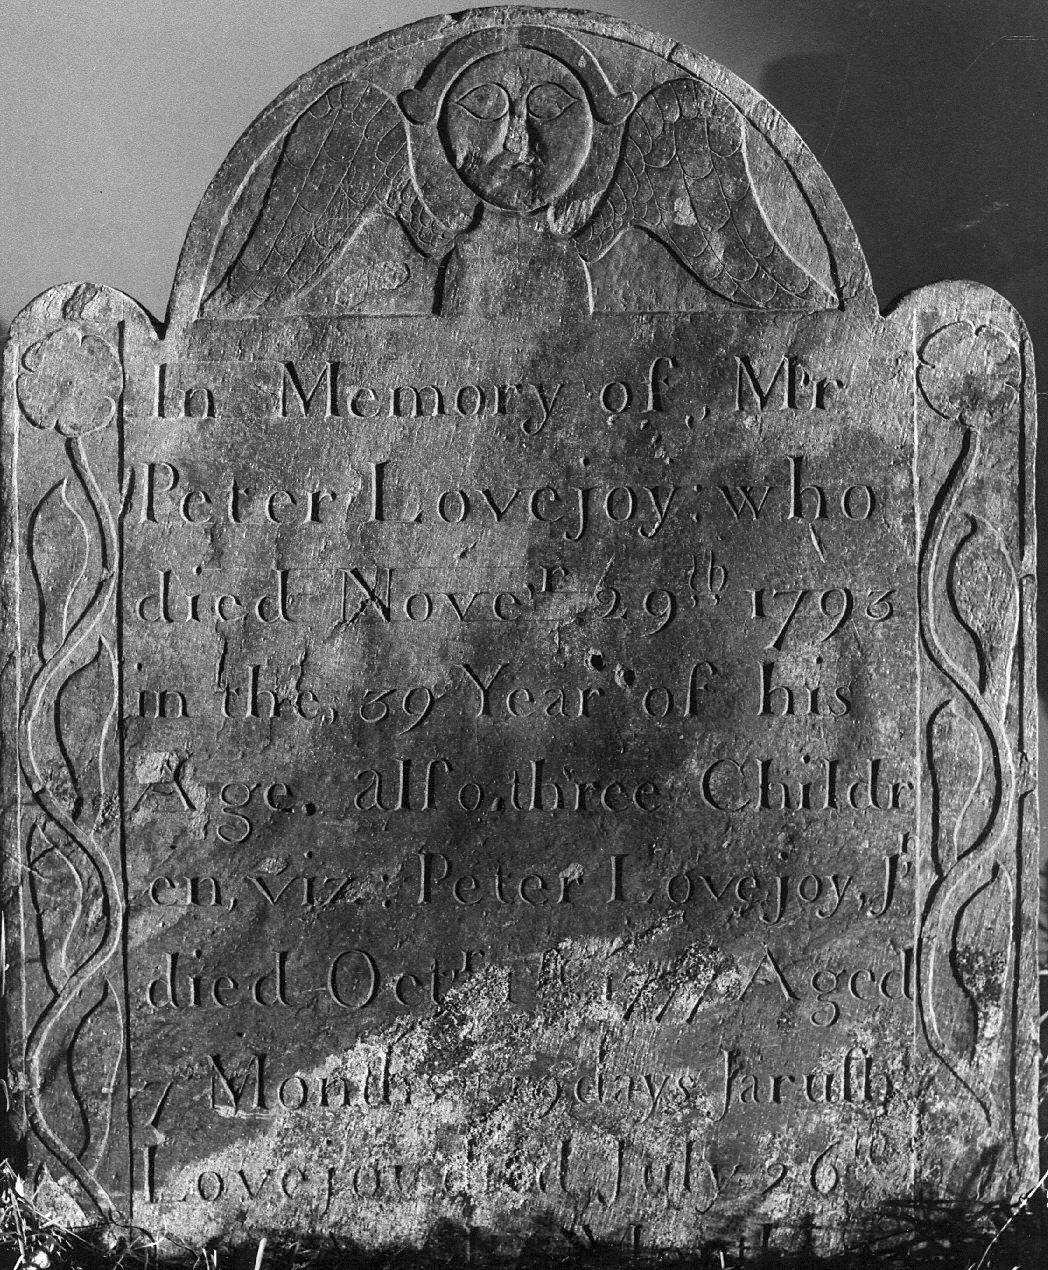 In Memory of Mr
Peter Lovejoy: who
died Nover 29th 1793
in the, 39 Year of his
Age, alſo, three Childr
en, viz: Peter Lovejoy, Jr
died Octr 1st 1777 Aged
7 Months 19 days Jaruſh
Lovejoy died July 26th
Month